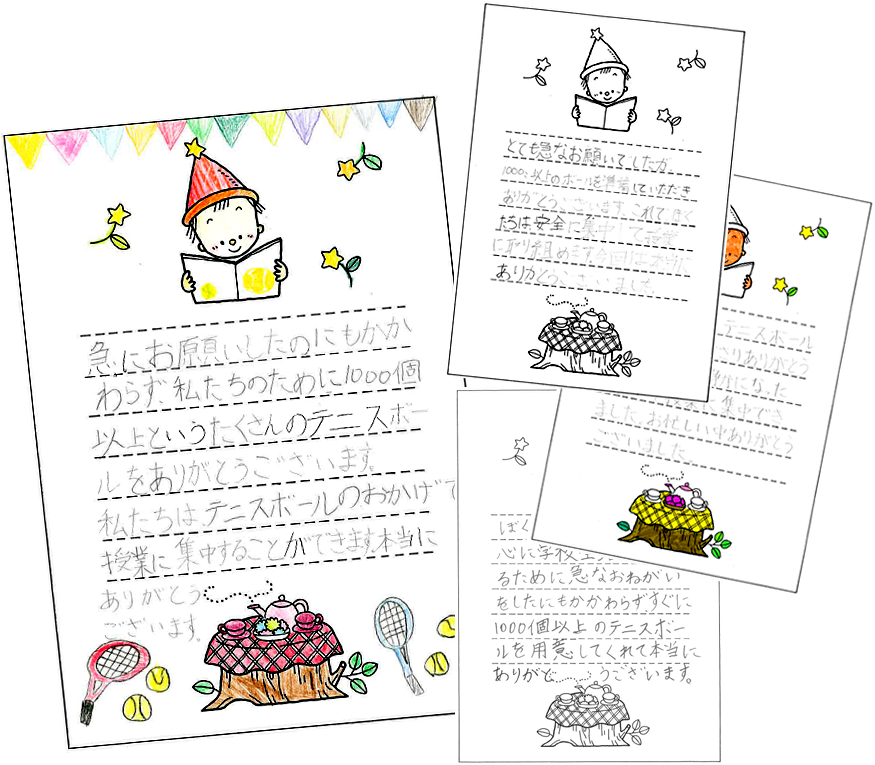 急にお願いしたのにもかか
わらず、私たちのために1000個
以上というたくさんのテニスボー
ルをありがとうございます。
私たちはテニスボールのおかげで
授業に集中することができます。本当に
ありがとう
ございます。
とても急なお願いでしたが、
1000個以上のボールを準備していただき
ありがとうございます。これでぼく
たちは安全に集中して授業
に取り組めます。今回は本当に
ありがとうございました。
テニスボール
ありがとう
になった
に集中でき
ました。お忙しい中ありがとう
ございました。
ぼく
心に学校
るために急なおねがい
をしたにもかかわらずすぐに
1000個以上のテニスボー
ルを用意してくれて本当に
ありがと うございます。